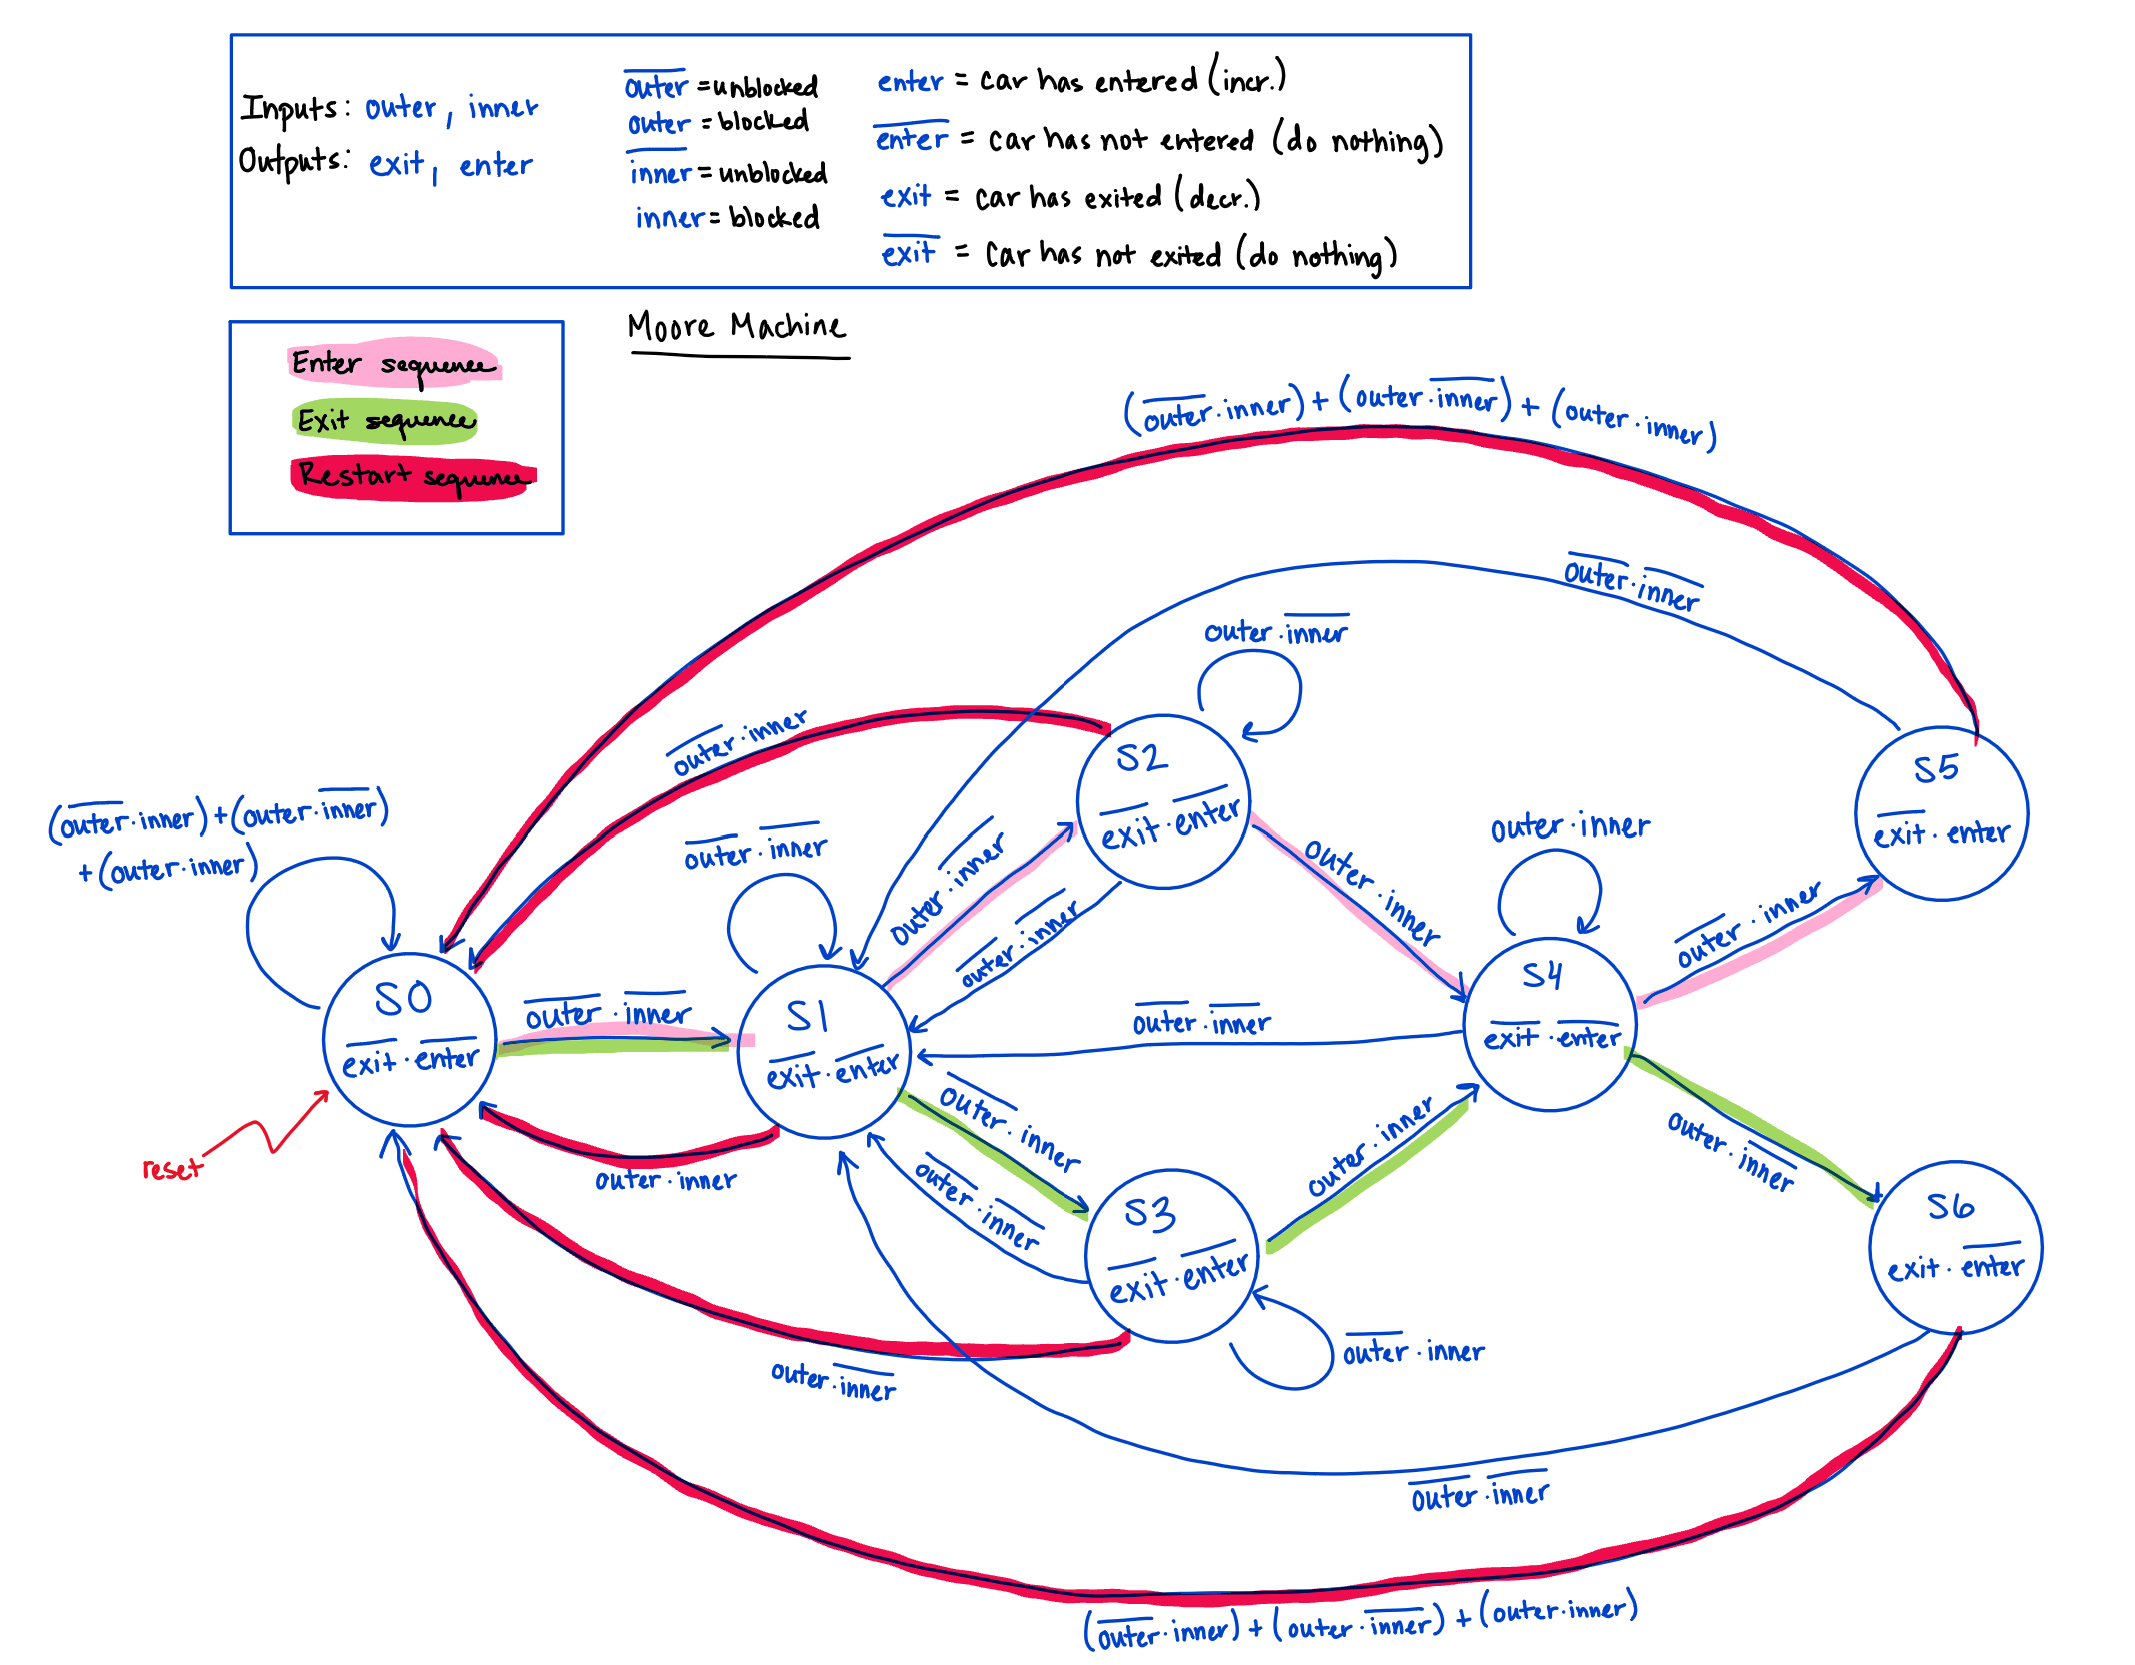 Inputs: outer, inner
Outputs: exit, enter
o̅u̅t̅e̅r̅ = unblocked
outer = blocked
i̅n̅n̅e̅r̅ = unblocked
inner = blocked
enter = car has entered (incr.)
e̅n̅t̅e̅r̅ = car has not entered (do nothing)
exit = car has exited (decr.)
e̅x̅i̅t̅ = car has not exited (do nothing)
Enter sequence
Exit sequence
Restart sequence
Moore Machine
(o̅u̅t̅e̅r̅·inner) + (outer·i̅n̅n̅e̅r̅) + (outer·inner)
o̅u̅t̅e̅r̅·i̅n̅n̅e̅r̅
outer·i̅n̅n̅e̅r̅
o̅u̅t̅e̅r̅·inner
S2
e̅x̅i̅t̅·e̅n̅t̅e̅r̅
S5
e̅x̅i̅t̅·enter
(o̅u̅t̅e̅r̅·inner) + (outer·i̅n̅n̅e̅r̅)
+ (outer·inner)
o̅u̅t̅e̅r̅·i̅n̅n̅e̅r̅
outer·i̅n̅n̅e̅r̅
o̅u̅t̅e̅r̅·i̅n̅n̅e̅r̅
outer·inner
outer·inner
o̅u̅t̅e̅r̅·inner
S0
e̅x̅i̅t̅·e̅n̅t̅e̅r̅
o̅u̅t̅e̅r̅·i̅n̅n̅e̅r̅
S1
e̅x̅i̅t̅·e̅n̅t̅e̅r̅
o̅u̅t̅e̅r̅·i̅n̅n̅e̅r̅
S4
e̅x̅i̅t̅·e̅n̅t̅e̅r̅
reset
outer·inner
o̅u̅t̅e̅r̅·inner
o̅u̅t̅e̅r̅·i̅n̅n̅e̅r̅
outer·inner
outer·i̅n̅n̅e̅r̅
S3
e̅x̅i̅t̅·e̅n̅t̅e̅r̅
S6
exit·e̅n̅t̅e̅r̅
o̅u̅t̅e̅r̅·inner
outer·i̅n̅n̅e̅r̅
o̅u̅t̅e̅r̅·i̅n̅n̅e̅r̅
(o̅u̅t̅e̅r̅·inner) + (outer·i̅n̅n̅e̅r̅) + (outer·inner)